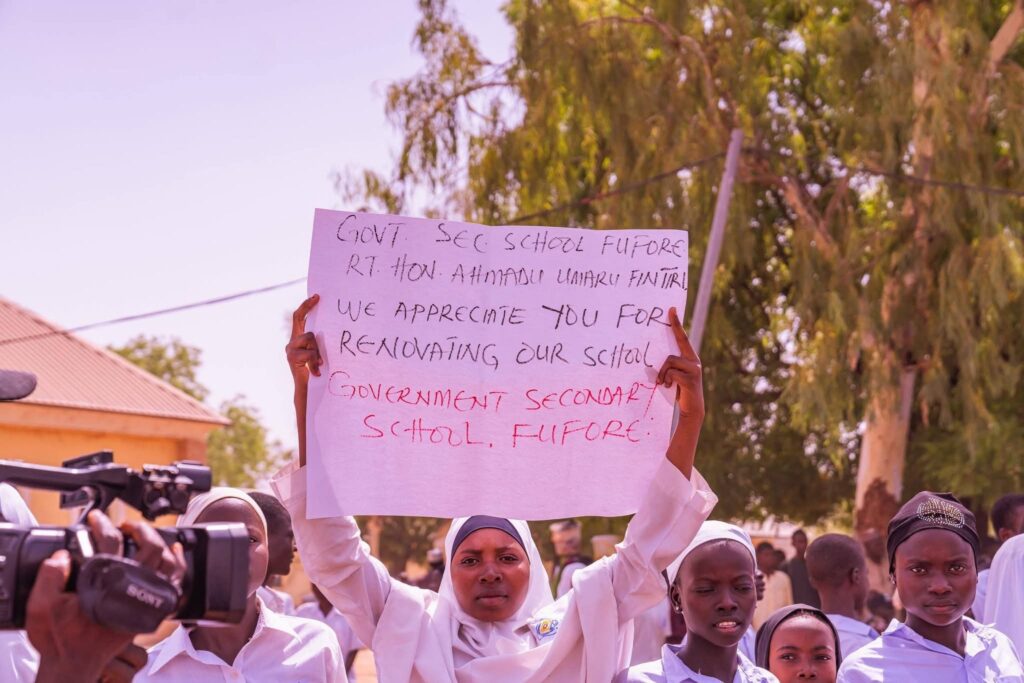 GOVT. SEC. SCHOOL FUFORE
RT. HON. AHMADU UMARU FINTIRI
WE APPRECIATE YOU FOR
RENOVATING OUR SCHOOL
GOVERNMENT SECONDARY
SCHOOL, FUFORE.
SONY